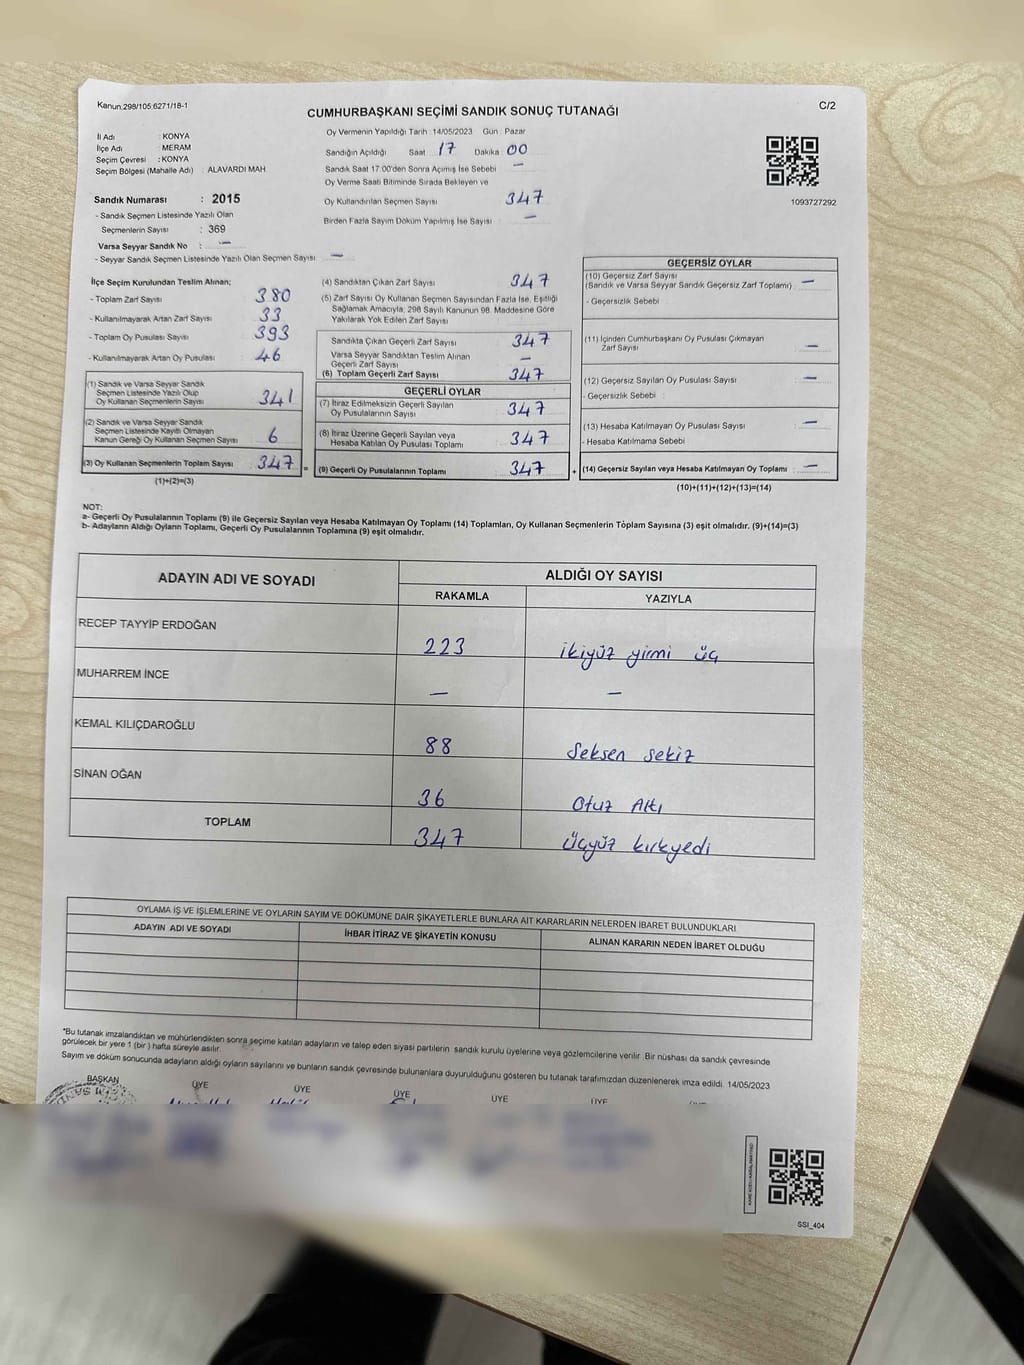 Kanun.298/105;6271/18-1
C/2
CUMHURBAŞKANI SEÇİMİ SANDIK SONUÇ TUTANAĞI
Oy Vermenin Yapıldığı Tarih : 14/05/2023 Gün : Pazar
İl Adı : KONYA
İlçe Adı : MERAM
Seçim Çevresi : KONYA
Seçim Bölgesi (Mahalle Adı) : ALAVARDI MAH
Sandık Numarası : 2015
- Sandık Seçmen Listesinde Yazılı Olan
Seçmenlerin Sayısı : 369
Varsa Seyyar Sandık No : —
- Seyyar Sandık Seçmen Listesinde Yazılı Olan Seçmen Sayısı : —
Sandığın Açıldığı Saat 17 Dakika 00
Sandık Saat 17:00'den Sonra Açımış İse Sebebi —
Oy Verme Saati Bitiminde Sırada Bekleyen ve
Oy Kullandırılan Seçmen Sayısı 347
Birden Fazla Sayım Döküm Yapılmış İse Sayısı : —
1093727292
İlçe Seçim Kurulundan Teslim Alınan;
- Toplam Zarf Sayısı 380
- Kullanılmayarak Artan Zarf Sayısı 33
- Toplam Oy Pusulası Sayısı 393
- Kullanılmayarak Artan Oy Pusulası 46
(1) Sandık ve Varsa Seyyar Sandık
Seçmen Listesinde Yazılı Olup
Oy Kullanan Seçmenlerin Sayısı 341
(2) Sandık ve Varsa Seyyar Sandık
Seçmen Listesinde Kayıtlı Olmayan
Kanun Gereği Oy Kullanan Seçmen Sayısı 6
(3) Oy Kullanan Seçmenlerin Toplam Sayısı 347 =
(1)+(2)=(3)
(4) Sandıktan Çıkan Zarf Sayısı 347
(5) Zarf Sayısı Oy Kullanan Seçmen Sayısından Fazla İse, Eşitliği
Sağlamak Amacıyla, 298 Sayılı Kanunun 98. Maddesine Göre
Yakılarak Yok Edilen Zarf Sayısı :
Sandıkta Çıkan Geçerli Zarf Sayısı 347
Varsa Seyyar Sandıktan Teslim Alınan
Geçerli Zarf Sayısı —
(6) Toplam Geçerli Zarf Sayısı 347
GEÇERLİ OYLAR
(7) İtiraz Edilmeksizin Geçerli Sayılan
Oy Pusulalarının Sayısı 347
(8) İtiraz Üzerine Geçerli Sayılan veya
Hesaba Katılan Oy Pusulası Toplamı 347
(9) Geçerli Oy Pusulalarının Toplamı 347 +
GEÇERSİZ OYLAR
(10) Geçersiz Zarf Sayısı
(Sandık ve Varsa Seyyar Sandık Geçersiz Zarf Toplamı) : —
- Geçersizlik Sebebi :
(11) İçinden Cumhurbaşkanı Oy Pusulası Çıkmayan
Zarf Sayısı —
(12) Geçersiz Sayılan Oy Pusulası Sayısı —
- Geçersizlik Sebebi :
(13) Hesaba Katılmayan Oy Pusulası Sayısı —
- Hesaba Katılmama Sebebi
(14) Geçersiz Sayılan veya Hesaba Katılmayan Oy Toplamı : —
(10)+(11)+(12)+(13)=(14)
NOT:
a- Geçerli Oy Pusulalarının Toplamı (9) ile Geçersiz Sayılan veya Hesaba Katılmayan Oy Toplamı (14) Toplamları, Oy Kullanan Seçmenlerin Toplam Sayısına (3) eşit olmalıdır. (9)+(14)=(3)
b- Adayların Aldığı Oyların Toplamı, Geçerli Oy Pusulalarının Toplamına (9) eşit olmalıdır.
ADAYIN ADI VE SOYADI
ALDIĞI OY SAYISI
RAKAMLA YAZIYLA
RECEP TAYYİP ERDOĞAN 223 ikiyüz yirmi üç
MUHARREM İNCE — —
KEMAL KILIÇDAROĞLU 88 Seksen sekiz
SİNAN OĞAN 36 Otuz Altı
TOPLAM 347 üçyüz kırkyedi
OYLAMA İŞ VE İŞLEMLERİNE VE OYLARIN SAYIM VE DÖKÜMÜNE DAİR ŞİKAYETLERLE BUNLARA AİT KARARLARIN NELERDEN İBARET BULUNDUKLARI
ADAYIN ADI VE SOYADI İHBAR İTİRAZ VE ŞİKAYETİN KONUSU ALINAN KARARIN NEDEN İBARET OLDUĞU
*Bu tutanak imzalandıktan ve mühürlendikten sonra seçime katılan adayların ve talep eden siyasi partilerin sandık kurulu üyelerine veya gözlemcilerine verilir. Bir nüshası da sandık çevresinde
görülecek bir yere 1 (bir) hafta süreyle asılır.
Sayım ve döküm sonucunda adayların aldığı oyların sayılarını ve bunların sandık çevresinde bulunanlara duyurulduğunu gösteren bu tutanak tarafımızdan düzenlenerek imza edildi. 14/05/2023
BAŞKAN ÜYE ÜYE ÜYE ÜYE ÜYE
SSI_404